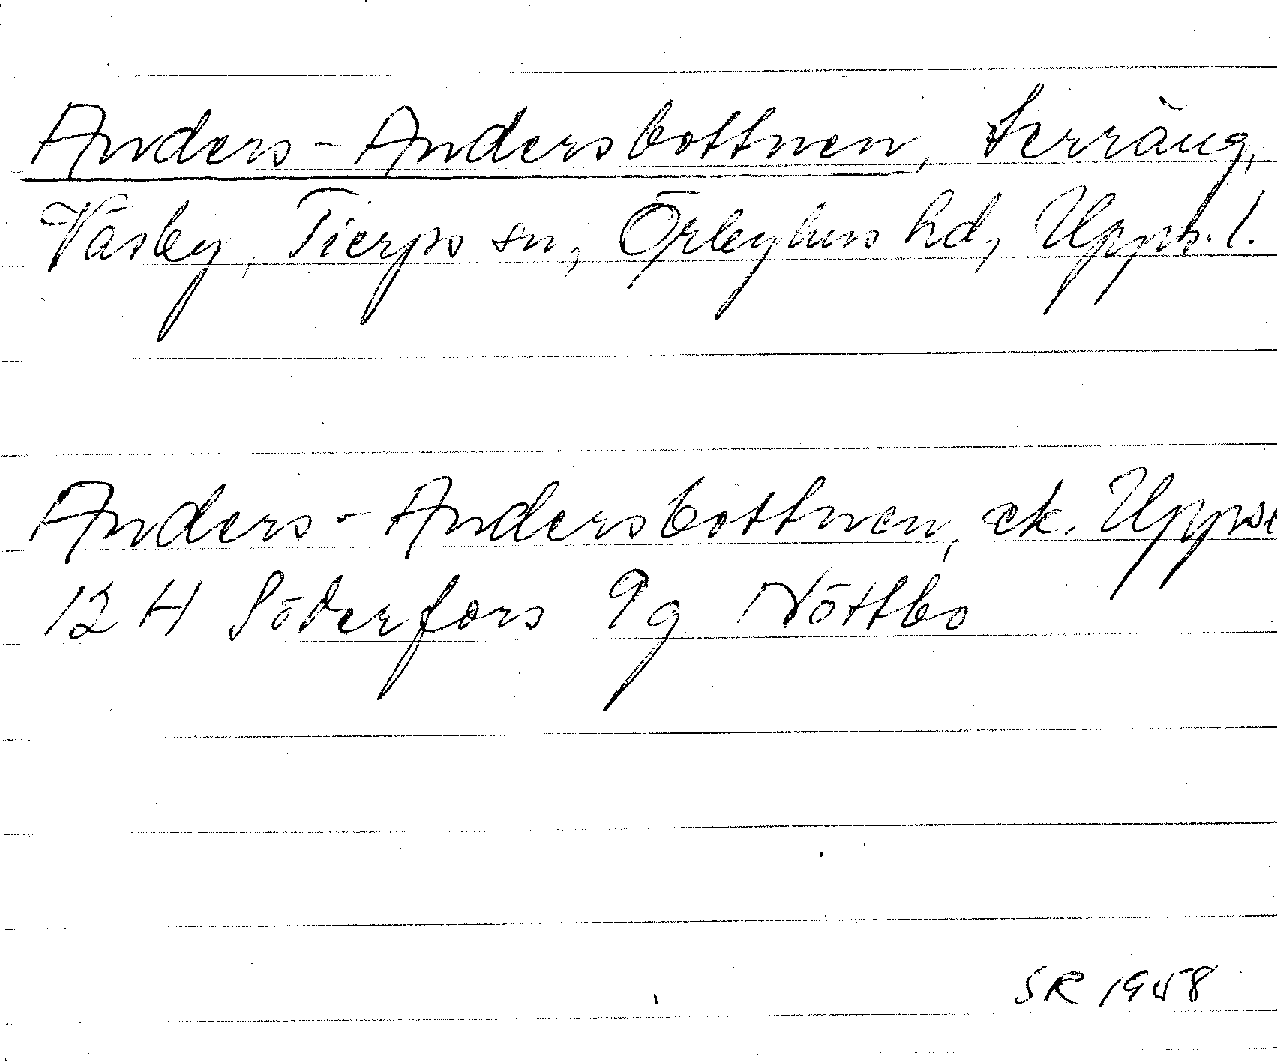 Anders-Andersbottnen, terräng,
Väsby, Tierps sn, Örbyhus hd, Upps. l.
Anders-Andersbottnen, ek. Upps
12 H Söderfors 9g Nöttbo
SR 1958